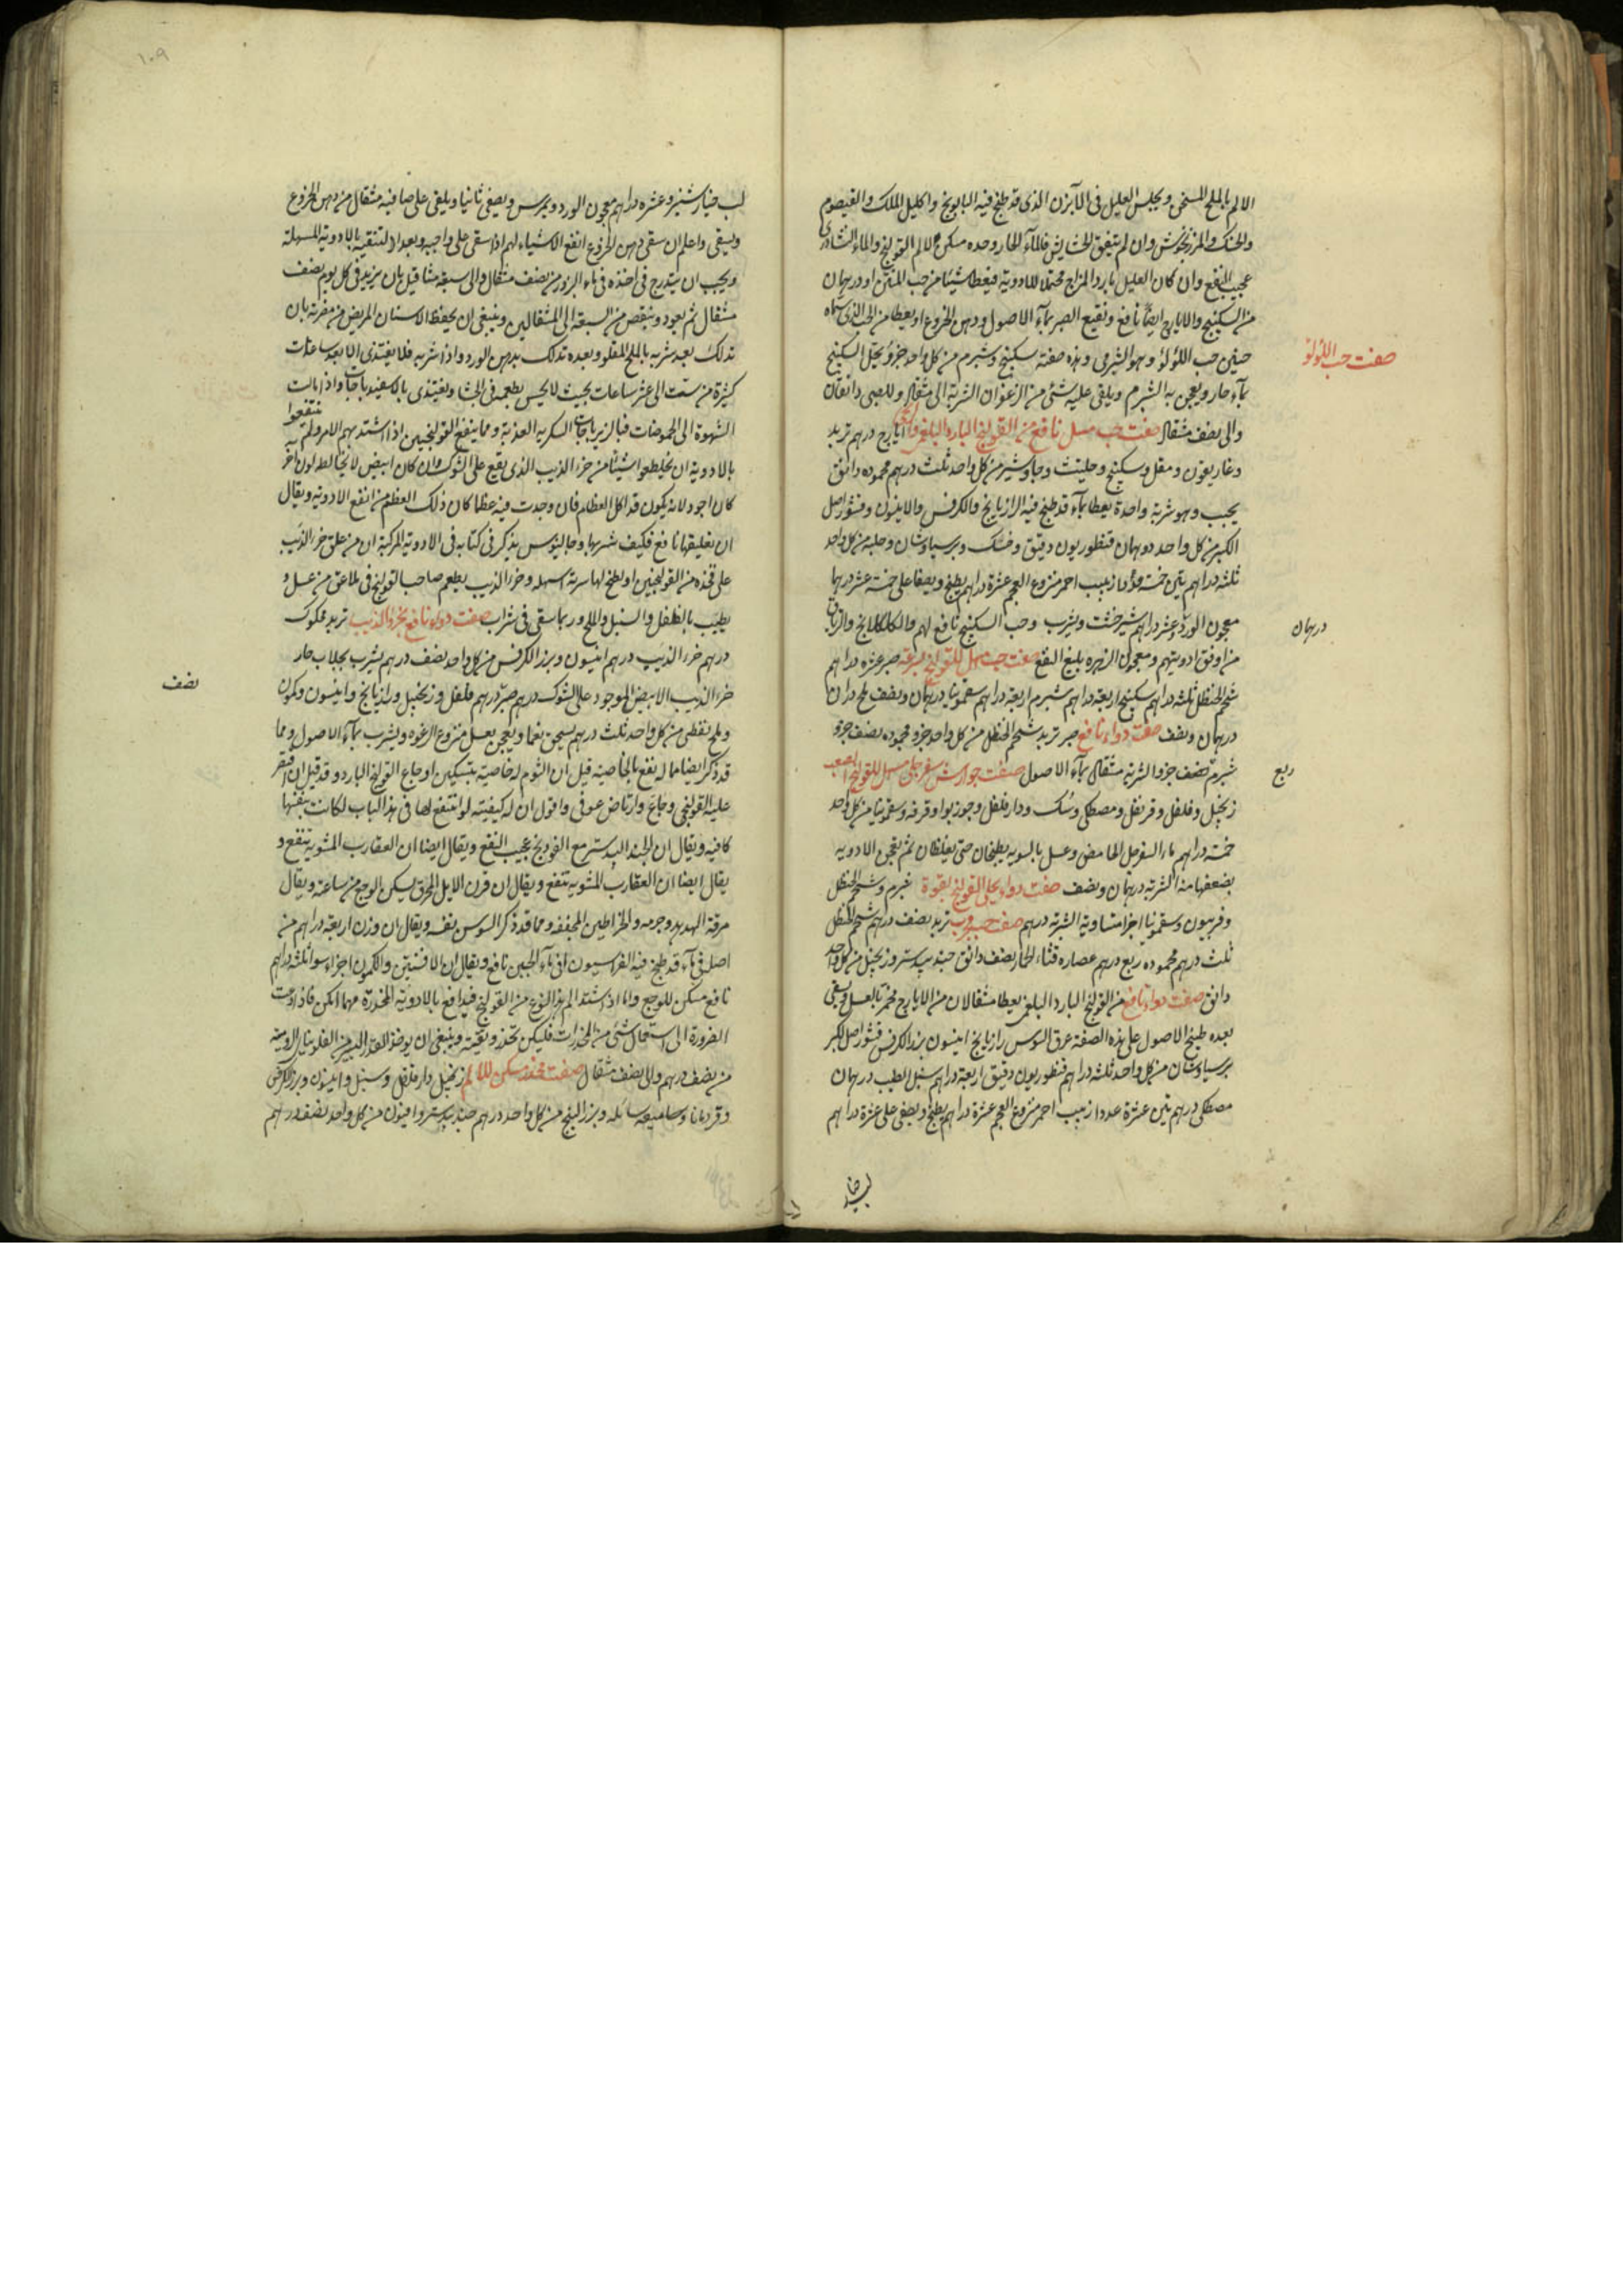 الالم بالملح المسخن ويجلس العليل فى الآبزن الذى قد طبخ فيه البابونج واكليل الملك والقيصوم
والمرزنجوش وان لم يتفق الحشايش فالماء الحار وحده مسكن لالم القولنج والماء
عجيب النفع وان كان العليل بارد المزاج محتملا للادوية فيعطا شيئا من حب المنتن او درهمان
من السكبينج والايارج ايضا نافع ونقيع الصبر بماء الاصول ودهن الخروع او يعطا من الحب الذى سماه
صفت حب اللؤلؤ
حنين حب اللؤلؤ وهو الشبرمى وهذه صفته سكبينج وشبرم من كل واحد جزؤ يحل السكبينج
بماء حار ويعجن به الشبرم ويلقى عليه شئ من الزعفران الشربة الى مثقال وللصبى دانقان
والى نصف مثقال صفت حب مسهل نافع من القولنج البارد البلغمى ايارج درهم تربد
وغاريقون ومقل وسكبينج وحلتيت وجاوشير من كل واحد ثلث درهم محموده دانق
يحبب وهو شربة واحدة يعطا بماء قد طبخ فيه الرازيانج والكرفس والانيسون وقشور اصل
الكبر من كل واحد درهمان قنطوريون دقيق وحسك وبرسياوشان وحلبه من كل واحد
ثلثه دراهم تين خمسة زبيب احمر منزوع العجم عشرة دراهم يطبخ ويصفا على خمسة عشر درهما
معجون الورد وعشر دراهم شيرخشت ويشرب وحب السكبينج نافع لهم والكلكلانج
درهمان
من اوفق ادويتهم ومعجون الزهره بليغ النفع صفت حب مسهل للقولنج بسرعة صبر عشره دراهم
شحم الحنظل ثلثه دراهم سكبينج اربعة دراهم شبرم اربعة دراهم سقمونيا درهمان ونصف ملح
درهمان ونصف صفت دواء نافع صبر تربد شحم الحنظل من كل واحد جزو محموده نصف جزو
شبرم نصف جزو الشربة مثقال بماء الاصول صفت جوارش سفرجلى مسهل للقولنج الصعب
ربع
زنجبيل وفلفل وقرنفل ومصطكى وسك ودارفلفل وجوزبوا وقرفه وسقمونيا من كل واحد
خمسة دراهم ماء السفرجل الحامض وعسل بالسويه يطبخان حتى يغلظان ثم يعجن الادويه
بضعفها منه الشربة درهمان ونصف صفت دواء يحل القولنج بقوة شبرم وشحم الحنظل
وفربيون وسقمونيا اجزا متساوية الشربة درهم صفت حب تربد نصف درهم شحم الحنظل
ثلث درهم محموده ربع درهم عصاره قثاء الحمار نصف دانق جندبيدستر وزنجبيل من كل واحد
دانق صفت دواء نافع من القولنج البارد البلغمى يعطا مثقالان من الايارج مخمر بالعسل ويسقى
بعده طبيخ الاصول على هذه الصفة عرق السوس رازيانج انيسون بزر الكرفس قشور اصل الكبر
برسياوشان من كل واحد ثلثه دراهم قنطوريون دقيق اربعة دراهم سنبل الطيب درهمان
مصطكى درهم تين عشرة عددا زبيب احمر منزوع العجم عشرة دراهم يطبخ ويصفى على عشرة دراهم
لب خيار
١٠٩
لب خيارشنبر وعشره دراهم معجون الورد ويمرس ويصفى ثانيا ويلقى على صافيه مثقال من دهن الخروع
ويسقى واعلم ان سقى دهن الخروع انفع الاشياء لهم اذا سقى على واجبه وبعد التنقية بالادوية المسهلة
ويجب ان يتدرج فى اخذه فى ماء البزور من نصف مثقال والى سبعة مثاقيل بان يزيد فى كل يوم نصف
مثقال ثم يعود وينقص من السبعة الى المثقالين وينبغى ان يحفظ الاسنان المريض من مضرته بان
تدلك بعد شربه بالملح المقلو وبعده تدلك بدهن الورد واذا شربه فلا يغتذى الا بعد ساعات
كثيرة من ست الى عشر ساعات بحيث لا يحس بطعمه فى الجشا ويغتذى بالاسفيدباجات واذا مالت
الشهوة الى الحموضات فبالزيرباجات السكريه العذبة ومما ينفع القولنجيين اذا اشتد بهم الامر ولم ينتفعوا
بالادوية ان يخلطوا شيئا من خرء الذيب الذى يقع على الشوك وان كان ابيض لا يخالطه لون اخر
كان اجود لانه يكون قد اكل العظام فان وجدت فيه عظما كان ذلك العظم من انفع الادوية ويقال
ان تعليقها نافع فكيف شربها وجالينوس يذكر فى كتابه فى الادوية المركبة ان من علق خرء الذيب
على فخذه من القولنجيين او لطخ لها سرته اسهله وخرء الذيب يطعم صاحب القولنج فى ملاعق من عسل و
يطيب بالفلفل والسنبل والملح وربما سقى فى شراب صفت دواء نافع بخرء الذيب تربد محكوك
درهم خرء الذيب درهم انيسون وبزر الكرفس من كل واحد نصف درهم يشرب بجلاب حار
نصف
خرء الذيب الابيض الموجود على الشوك درهم صبر درهم فلفل وزنجبيل ورازيانج وانيسون وكمون
وملح نفطى من كل واحد ثلث درهم يسحق نعما ويعجن بعسل منزوع الرغوه ويشرب بماء الاصول ومما
قد ذكر ايضا مما له نفع بالخاصية قيل ان الثوم له خاصية بتسكين اوجاع القولنج البارد وقد قيل ان اقتصر
عليه القولنجى وجاع وارتاض عوفى واقول ان له كيفيته لو انتفع لها فى هذا الباب لكانت بنفسها
كافيه ويقال ان الجندبيدستر مع الفودنج عجيب النفع ويقال ايضا ان العقارب المشويه تنفع و
يقال ايضا ان العقارب المشويه تنفع ويقال ان قرن الايل المحرق يسكن الوجع من ساعته ويقال
مرقة الهدهد وجرمه والخراطين المجففه ومما قد ذكر السوس نفسه ويقال ان وزن اربعة دراهم من
اصل فى ماء قد طبخ فيه الفراسيون او فى ماء الجبن نافع ويقال ان الافسنتين والكمون اجزاء سوا ثلثه دراهم
نافع مسكن للوجع واما اذا اشتد الم هذا النوع من القولنج فيدافع بالادوية المخدرة مهما امكن فاذا دعت
الضرورة الى استعمال شئ من المخدرات فليكن بتحذر وتقية وينبغى ان يؤخذ القدر اليسير من الفلونيا الرومية
من نصف درهم والى نصف مثقال صفت مخدر مسكن للالم زنجبيل دارفلفل وسنبل وانيسون وبزر الكرفس
وقردمانا وميعه سائله وبزر البنج من كل واحد درهم جندبيدستر وافيون من كل واحد نصف درهم